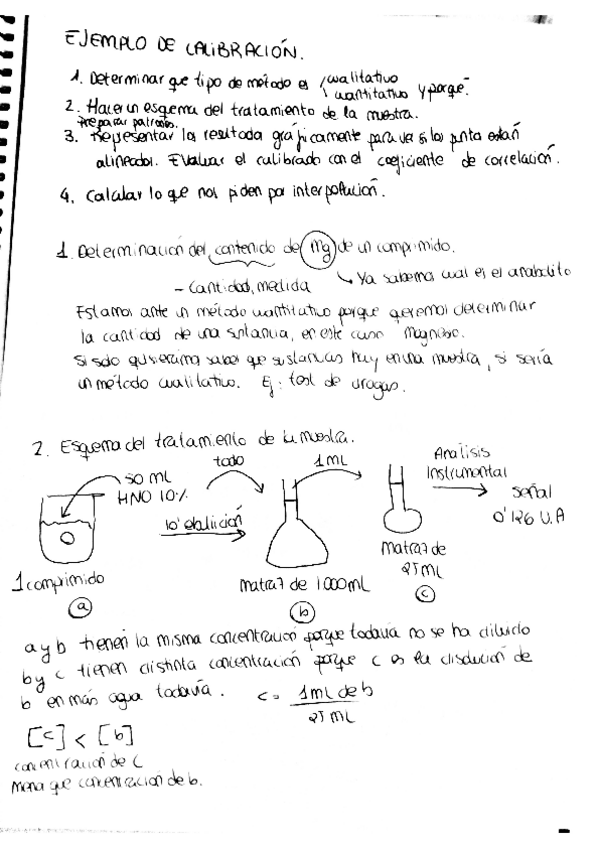 EJEMPLO DE CALIBRACIÓN.
1. Determinar que tipo de metodo es cualitativo
cuantitativo y porque.
2. Hacer un esquema del tratamiento de la muestra.
Preparar patrones.
3. Representar los resultados gráficamente para ver si los puntos están
alineados. Evaluar el calibrado con el coeficiente de correlación.
4. Calcular lo que nos piden por interpolación.
1. Determinación del contenido de Mg de un comprimido.
- Cantidad, medida
Ya sabemos cual es el anabolito
Estamos ante un método cuantitativo porque queremos determinar
la cantidad de una sustancia, en este caso Magnesio.
Si solo quisieramos saber que sustancias hay en una muestra, si sería
un método cualitativo. Ej: test de drogas.
2. Esquema del tratamiento de la muestra.
50 mL
HNO 10%
todo
1 mL
Analisis
Instrumental
señal
0'126 U.A
10' ebullición
1 comprimido
Matraz de 1000 mL
Matraz de
25 mL
a
b
c
a y b tienen la misma concentración porque todavia no se ha diluido
b y c tienen distinta concentración porque c es la disolución de
b en más agua todavía. c = 1 mL de b
25 mL
[c] < [b]
concentración de c
menor que concentración de b.